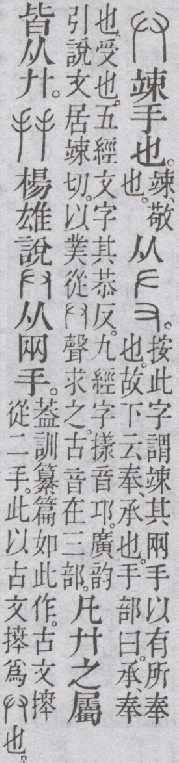 𠬞竦手也。竦、敬也。从𠂇又。按此字謂竦其兩手以有所奉也。故下云奉、承也。手部曰。承、奉
也、受也。五經文字其恭反。九經字樣音邛。廣韵引說文居竦切。以菐從𠬞聲求之。古音在三部。凡廾之屬
皆从廾。𢪙楊雄說𠬞从兩手。葢訓纂篇如此作。古文𢷎從二手。此以古文𢷎爲𠬞也。